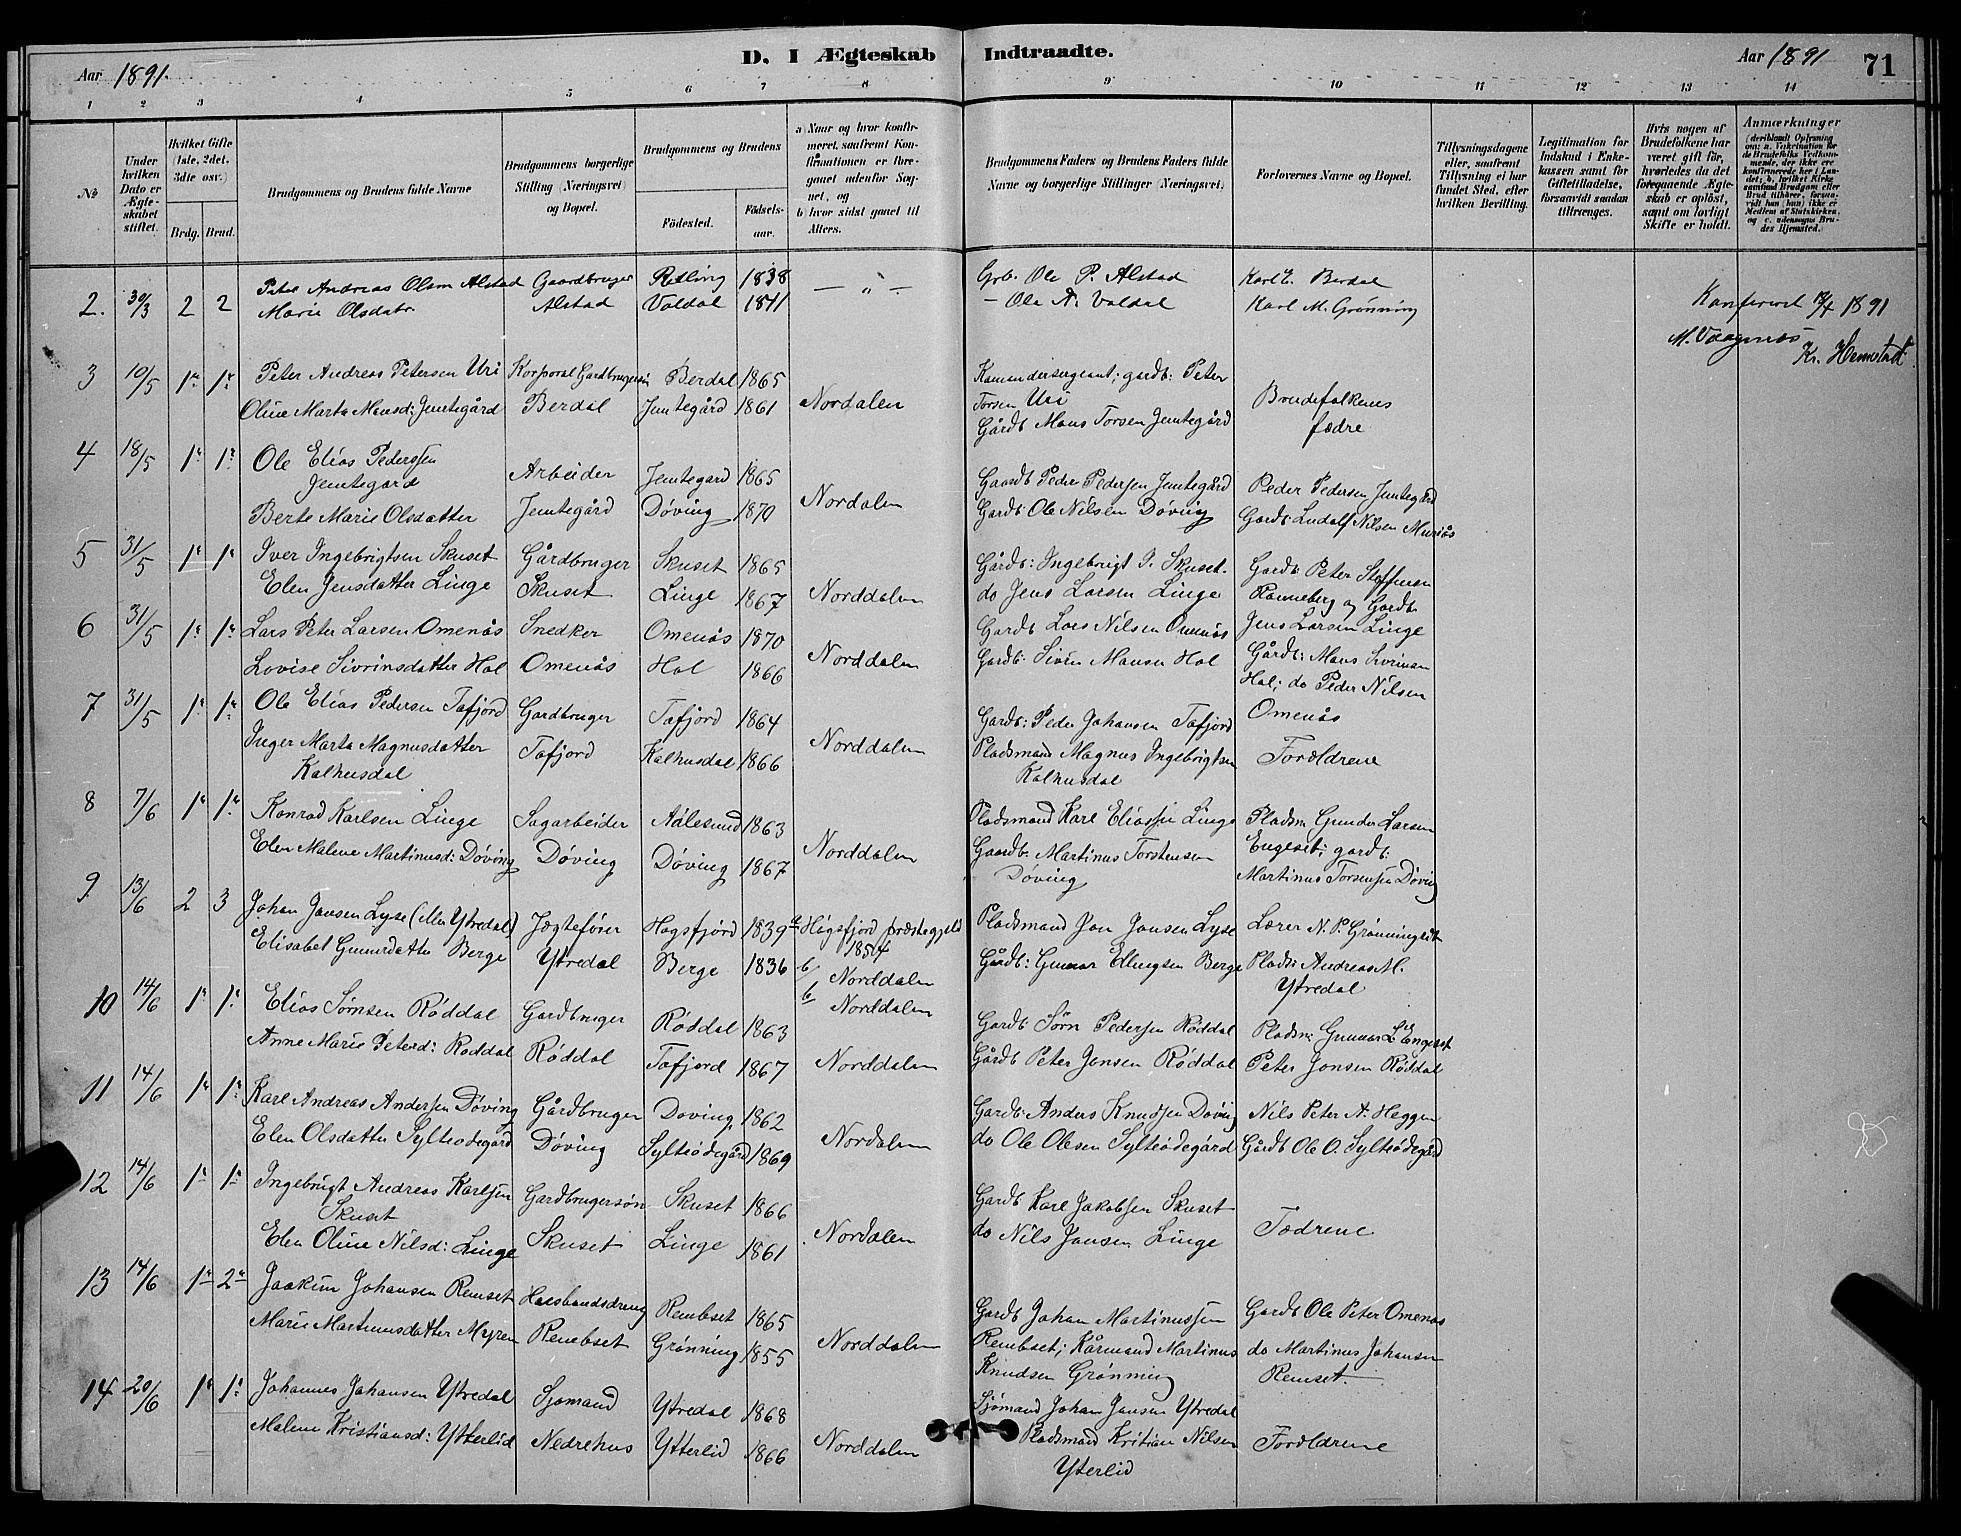 D. I Ægteskab Indtraadte.
Aar 1891.
Aar 1891
71
1 2 3 4 5 6 7 8 9 10 11 12 13 14
No
Under hvilken Dato er Ægteskabet stiftet.
Hvilket Gifte (1ste, 2det, 3die osv.)
Brdg. Brud.
Brudgommens og Brudens fulde Navne
Brudgommens borgerlige Stilling (Næringsvei) og Bopæl.
Brudgommens og Brudens
Födested. Födselsaar.
a Naar og hvor konfirmeret, saafremt Konfirmationen er foregaaet udenfor Sognet, og
b hvor sidst gaaet til Alters.
Brudgommens Faders og Brudens Faders fulde Navne og borgerlige Stillinger (Næringsvei.)
Forlovernes Navne og Bopæl.
Tillysningsdagene eller, saafremt Tillysning ei har fundet Sted, efter hvilken Bevilling.
Legitimation for Indskud i Enkekassen samt for Giftetilladelse, forsaavidt saadan tiltrænges.
Hvis nogen af Brudefolkene har været gift før, hvorledes da det foregaaende Ægteskab er opløst, samt om lovligt Skifte er holdt.
Anmærkninger
2. 30/3 2 2 Peter Andreas Olsen Alstad Gaardbruger Relling 1838 — " — Grb. Ole P. Alstad Karl E. Berdal
Marie Olsdatr. Alstad Valdal 1841 — Ole N. Valdal Karl M. Grønning
Konfereret 1891
M. Vaagnæs
Kr. Hemstad
3 10/5 1ste 1ste Peter Andreas Petersen Uri Korporal Gardbrugersøn Berdal 1865 Komandersergeant; gardb: Peter Torsen Uri Brudefolkenes
Oline Marta Monsd: Jemtegård Berdal Jemtegård 1861 Nordalen Gårdb Mons Torsen Jemtegård fædre
4 18/5 1ste 1ste Ole Elias Pederssen Jemtegard Arbeider Jemtegard 1865 Gaardb Peder Pedersen Jemtegård Peder Pedersen Jemtegård
Berte Marie Olsdatter Jemtegård Døving 1870 Nordalen Gardb: Ole Nilsen Døving Gardb: Ludolf Nilsen Muriås
5 31/5 1ste 1ste Iver Ingebrigtsen Skuset Gårdbruger Skuset 1865 Gårdb: Ingebrigt I. Skuset. Gardb: Peter Steffensen
Elen Jensdatter Linge Skuset Linge 1867 Norddalen do Jens Larsen Linge Ranneberg og Gardb. Jens Larsen Linge
6 31/5 1ste 1ste Lars Peter Larsen Omenås Snedker Omenås 1870 Gardb Lars Nilsen Omenås
Lovise Sivrinsdatter Hol Omenås Hol 1866 Norddalen Gardb: Sivrin Monsen Hol Gårdb: Mons Sivrinsen Hol; do Peder Nilsen Omenås
7 31/5 1ste 1ste Ole Elias Pedersen Tafjord Gardbruger Tafjord 1864 Gardb: Peder Johansen Tafjord
Inger Marta Magnusdatter Kalhusdal Tafjord Kalhusdal 1866 Norddalen Pladsmand Magnus Ingebrigtsen Kalhusdal Forældrene
8 7/6 1ste 1ste Konrad Karlsen Linge Sagarbeider Aalesund 1863 Pladsmand Karl Eliassen Linge Pladsm Gunder Larsen Engeset; gardb:
Elen Malene Martinusd: Døving Døving Døving 1867 Norddalen Gaardb: Martinus Torstensen Døving Martinus Torsensen Døving
9 13/6 2 3 Johan Jansen Lyse (eller Ytredal) Jægtefører Høgsfjord 1839 a Høgsfjord præstegjeld 1854 Pladsmand Jon Jansen Lyse Lærer N. P. Grønningsæt
Elisabet Gunnardatter Berge Ytredal Berge 1836 b/ Norddalen Gårdb: Gunnar Ellingsen Berge Pladsm Andreas M. Ytredal
10 14/6 1ste 1ste Elias Sørnsen Røddal Gardbruger Røddal 1863 b/ Norddalen Gardb Sørn Pedersen Røddal Pladsm Gunnar L Engeset
Anne Marie Petersd: Røddal Røddal Tafjord 1867 Norddalen Gårdb Peter Jonsen Røddal Peter Jonsen Røddal
11 14/6 1ste 1ste Karl Andreas Andersen Døving Gårdbruger Døving 1862 Gardb: Anders Knudsen Døving Nils Peter A. Heggen
Elen Olsdatter Sylteødegård Døving Sylteødegård 1869 Nordalen do Ole Olesen Sylteødegård Gårdb Ole O. Sylteødegård
12 14/6 1ste 1ste Ingebrigt Andreas Karlsen Skuset Gardbrugersøn Skuset 1866 Gardb Karl Jakobsen Skuset
Elen Oline Nilsd: Linge Skuset Linge 1861 Nordalen do Nils Jansen Linge Fædrene
13 14/6 1ste 2de Joakim Johansen Remset Husbondsdreng Rembset 1865 Gardb Johan Martinussen Gardb Ole Peter Omenås
Marie Martinusdatter Myren Rembset Grønning 1855 Norddalen Rembset; Kårmand Martinus Knudsen Grønning do Martinus Johansen Remset.
14 20/6 1ste 1ste Johannes Johansen Ytredal Sjømand Ytredal 1868 Sjømand Johan Jansen Ytredal
Malene Kristiansd: Ytterlid Nedrehus Ytterlid 1866 Norddalen Pladsmand Kristian Nilsen Yterlid Forældrene